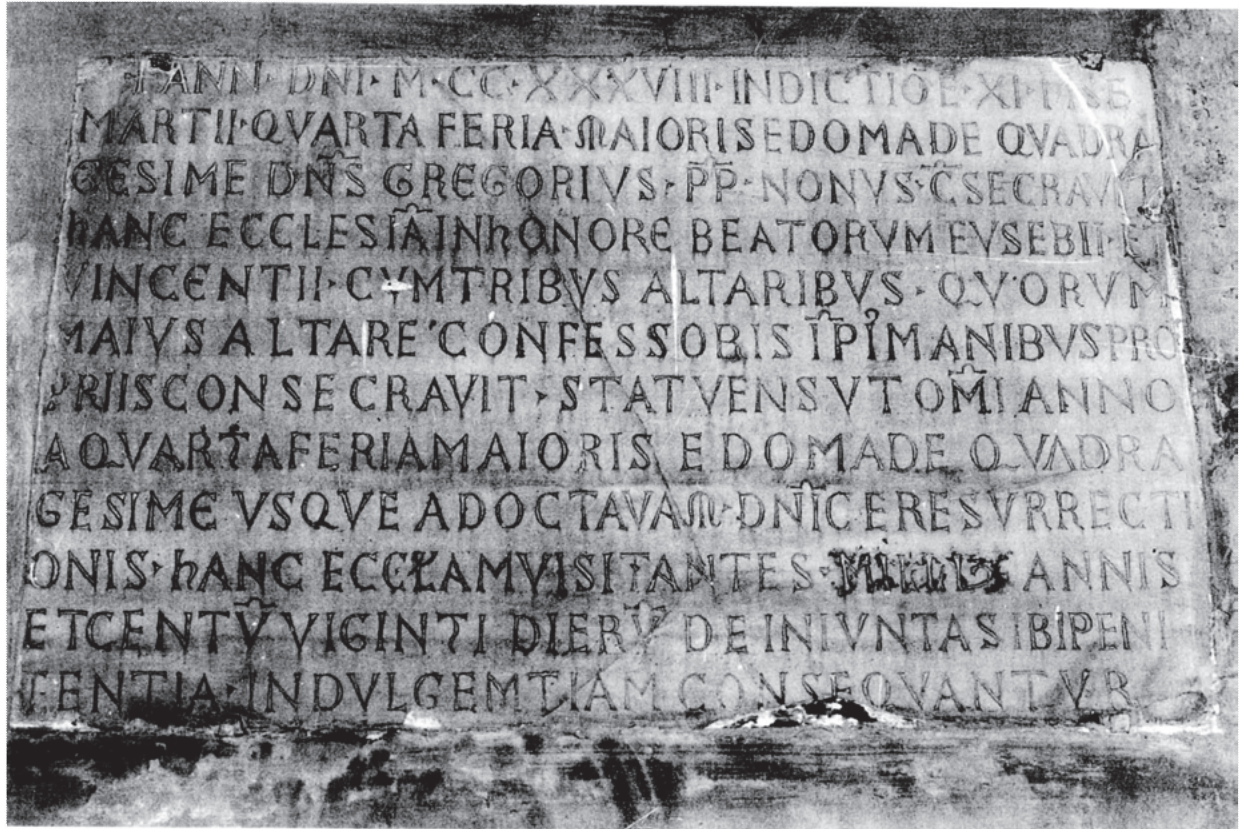 ANN· DNI· M·CC·XXXVIII·INDICTIOE·XI·MSE
MARTII·QVARTA FERIA·MAIORIS EDOMADE QVADRA
GESIME DN̅S GREGORIVS·P̅P̅·NONVS·C̅SECRAVIT
hANC ECCLESIA̅ IN hONORE BEATORVM EVSEBII·ET
VINCENTII·CVM TRIBVS ALTARIBVS·QVORVM
MAIVS ALTARE CONFESSOBIS I̅P̅I MANIBVS PRO
PRIIS CONSECRAVIT·STATVENS VT OM̅I ANNO
A QVARTA FERIA MAIORIS EDOMADE QVADRA
GESIME VSQVE AD OCTAVAM·DN̅I̅CE RESVRRECTI
ONIS·hANC ECCLAM VISITANTES· ANNIS
ET CENTV̅ VIGINTI DIERV̅ DE INIVNTA SIBI PENI
TENTIA·INDVLGEMTIAM CONSEQVANTVR